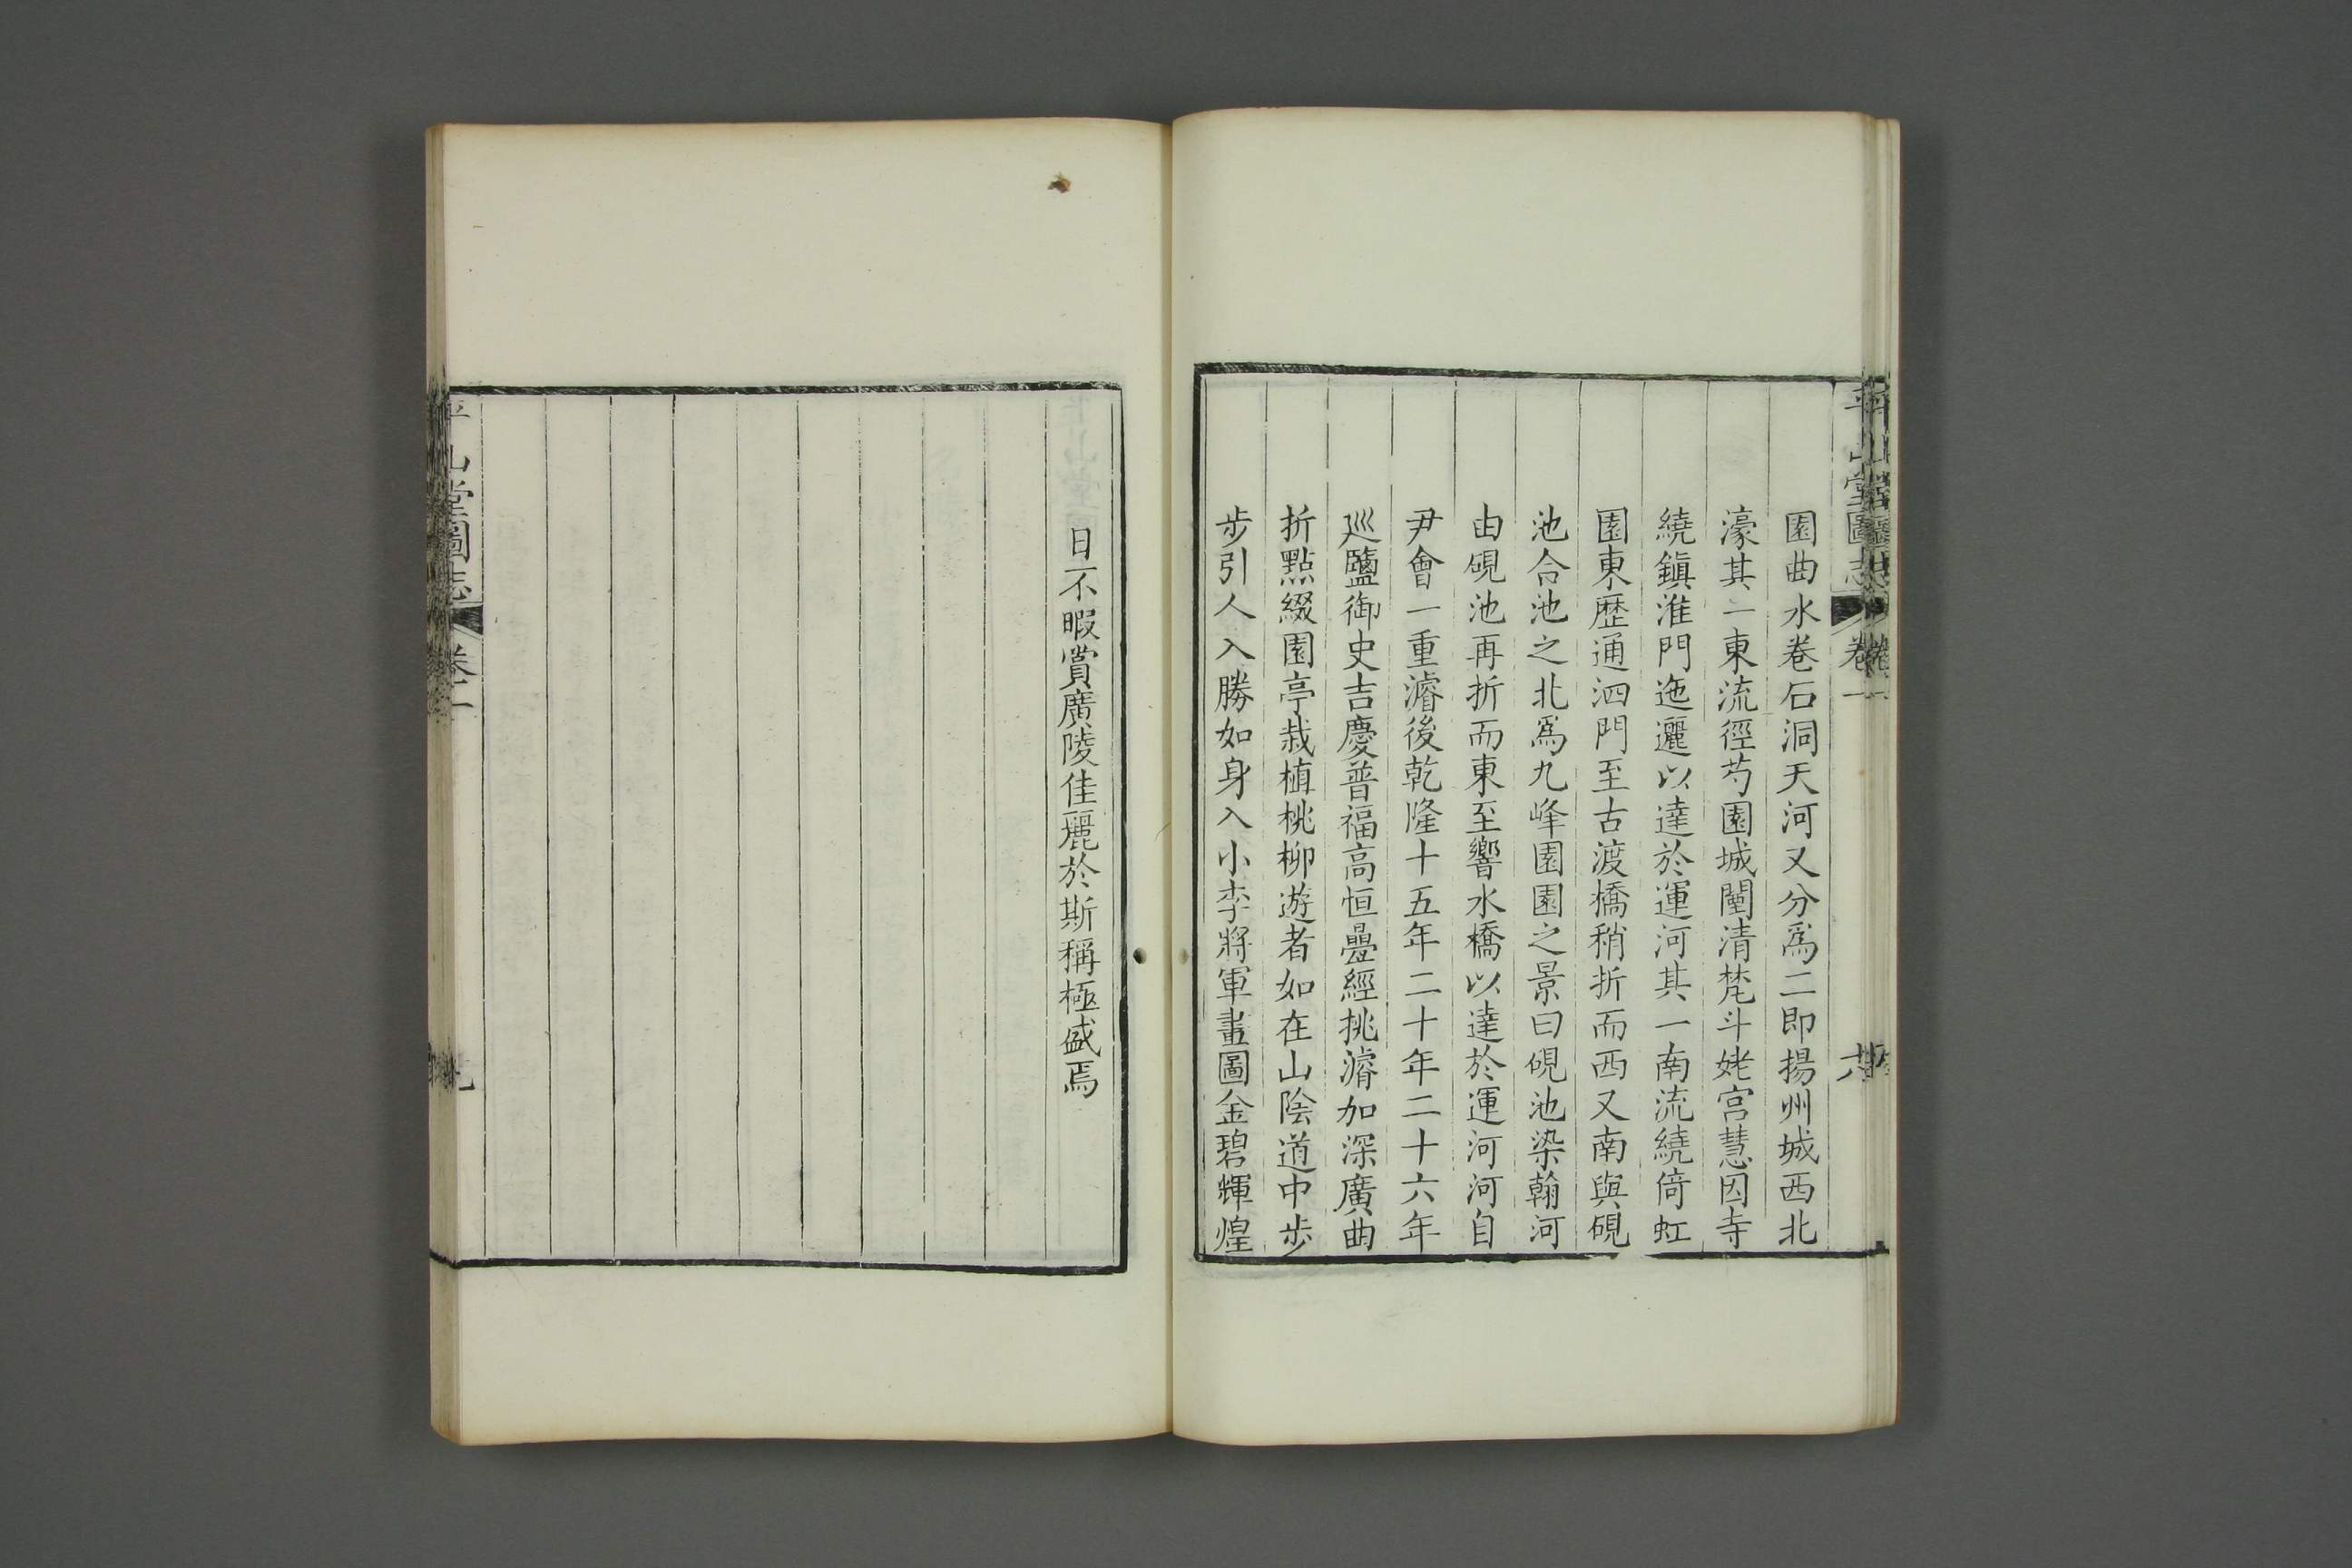 園曲水卷石洞天河又分爲二即揚州城西北
濠其一東流徑芍園城闉清梵斗姥宫慧因寺
繞鎮淮門迤邐以達於運河其一南流繞倚虹
園東歷通泗門至古渡橋稍折而西又南與硯
池合池之北爲九峰園園之景曰硯池染翰河
由硯池再折而東至響水橋以達於運河河自
尹會一重濬後乾隆十五年二十年二十六年
巡鹽御史吉慶普福高恒疊經挑濬加深廣曲
折點綴園亭栽植桃柳遊者如在山陰道中步
步引人入勝如身入小李將軍畫圖金碧輝煌
日不暇賞廣陵佳麗於斯稱極盛焉
平山堂圖志
卷一